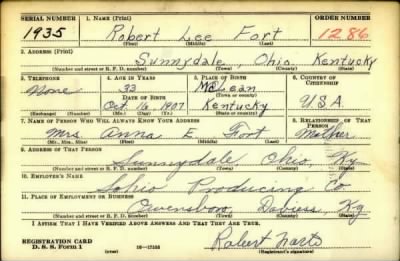 SERIAL NUMBER 1. NAME (Print) ORDER NUMBER
1935 Robert Lee Fort 1286
(First) (Middle) (Last)
2. ADDRESS (Print)
Sunnydale, Ohio Kentucky
(Number and street or R. F. D. number) (Town) (County) (State)
3. TELEPHONE 4. AGE IN YEARS 5. PLACE OF BIRTH 6. COUNTRY OF CITIZENSHIP
None 33 McLean
DATE OF BIRTH (Town or county)
Oct 16, 1907 Kentucky U.S.A.
(Exchange) (Number) (Mo.) (Day) (Yr.) (State or country)
7. NAME OF PERSON WHO WILL ALWAYS KNOW YOUR ADDRESS 8. RELATIONSHIP OF THAT PERSON
Mrs Anna E. Fort Mother
(Mr., Mrs., Miss) (First) (Middle) (Last)
9. ADDRESS OF THAT PERSON
Sunnydale Ohio, Ky
(Number and street or R. F. D. number) (Town) (County) (State)
10. EMPLOYER'S NAME
Sohio Producing Co
11. PLACE OF EMPLOYMENT OR BUSINESS
Owensboro, Daviess, Ky
(Number and street or R. F. D. number) (Town) (County) (State)
I AFFIRM THAT I HAVE VERIFIED ABOVE ANSWERS AND THAT THEY ARE TRUE.
REGISTRATION CARD
D. S. S. Form 1 16—17105 Robert
(Registrant's signature)